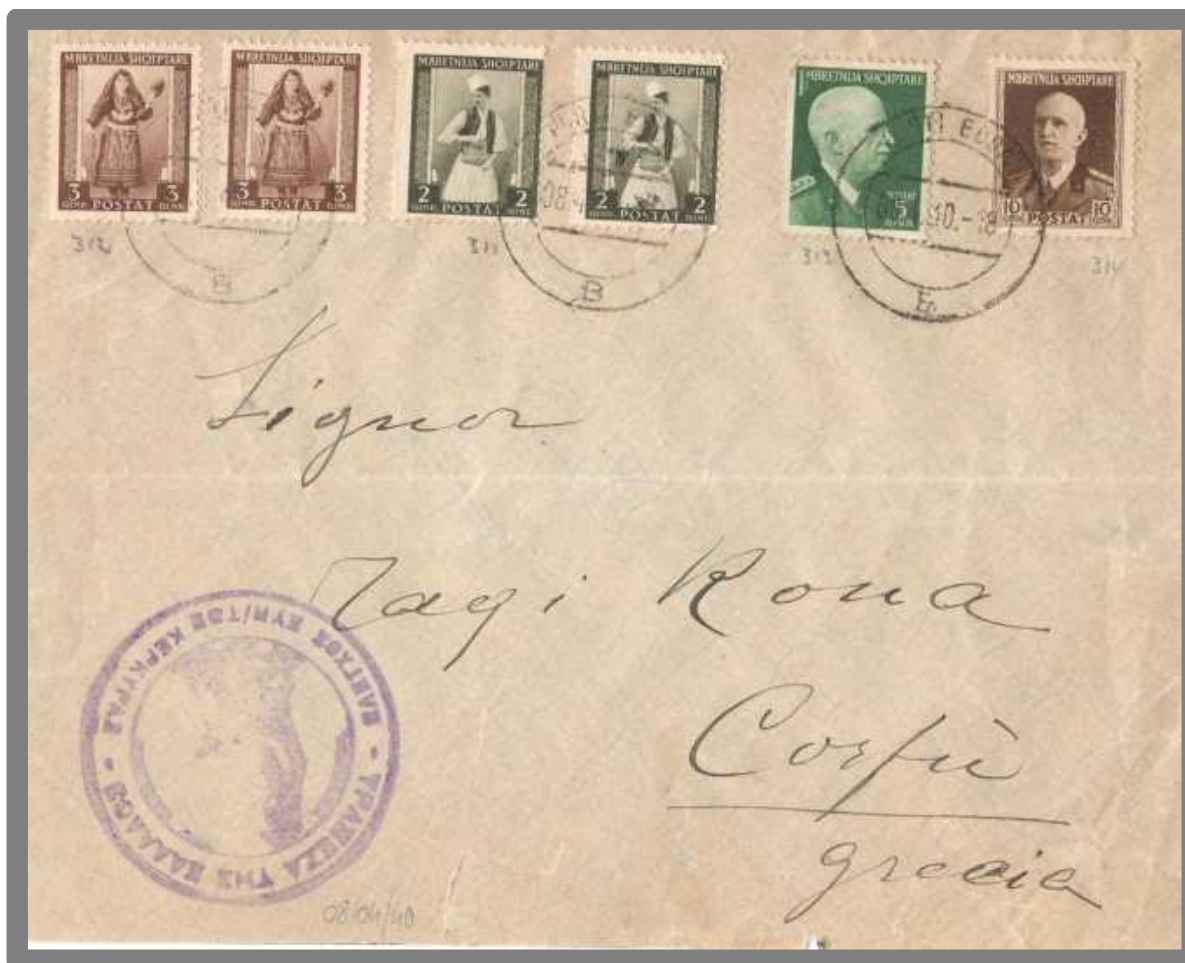 MBRETNIJA SHQIPTARE
3 QIND. POSTAT 3 QIND.
MBRETNIJA SHQIPTARE
3 QIND. POSTAT 3 QIND.
MBRETNIJA SHQIPTARE
2 QIND. POSTAT 2 QIND.
MBRETNIJA SHQIPTARE
2 QIND. POSTAT 2 QIND.
POSTAT
5
QIND.
MBRETNIJA SHQIPTARE
10 POSTAT 10
08.
40.-18
B
B
312
311
313
314
Signor
Zagi Kona
Corfù
grecia
ΤΡΑΠΕΖΑ ΤΗΣ ΕΛΛΑΔΟΣ
ΕΛΕΓΧΟΣ ΣΥΝ/ΤΟΣ ΚΕΡΚΥΡΑΣ
08/04/40